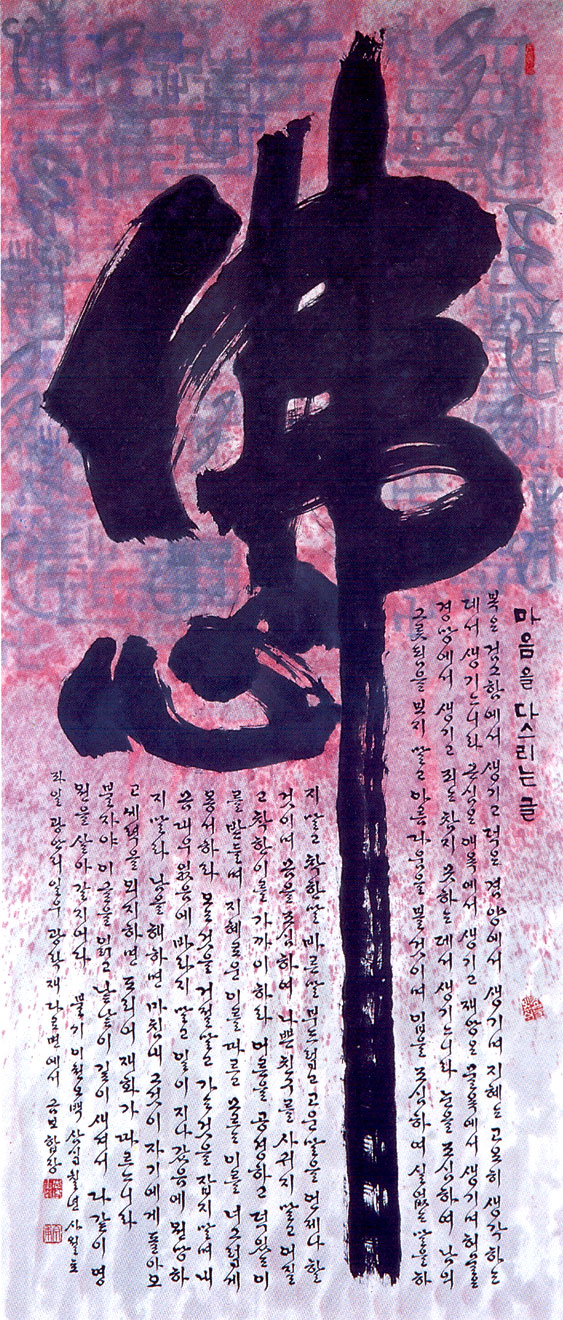 佛心
마음을 다스리는 글
복은 검소함에서 생기고 덕은 겸양에서 생기며 지혜는 고요히 생각하는
데서 생기느니라 근심은 애욕에서 생기고 재앙은 물욕에서 생기며 허물은
경망에서 생기고 죄는 참지 못하는 데서 생기느니라 눈을 조심하여 남의
그릇됨을 보지 말고 아름다움을 볼것이며 입을 조심하여 실없는 말을 하
지 말고 착한 말 바른 말 부드럽고 고운 말을 언제나 할
것이며 몸을 조심하여 나쁜 친구를 사귀지 말고 어질
고 착한 이를 가까이 하라 어른을 공경하고 덕있는 이
를 받들며 지혜로운 이를 따르고 모르는 이를 너그럽게
용서하라 오는 것을 거절말고 가는 것을 잡지 말며 내
몸 대우 없음에 바라지 말고 일이 지나갔음에 원망하
지 말라 남을 해하면 마침내 그것이 자기에게 돌아오
고 세력을 의지하면 도리어 재화가 따르느니라
불자야 이 글을 읽고 낱낱이 깊이 새겨서 다같이 영
원을 살아갈지어다 불기 이천오백삼십칠년 사월 초
팔일 광안리 일우 합장